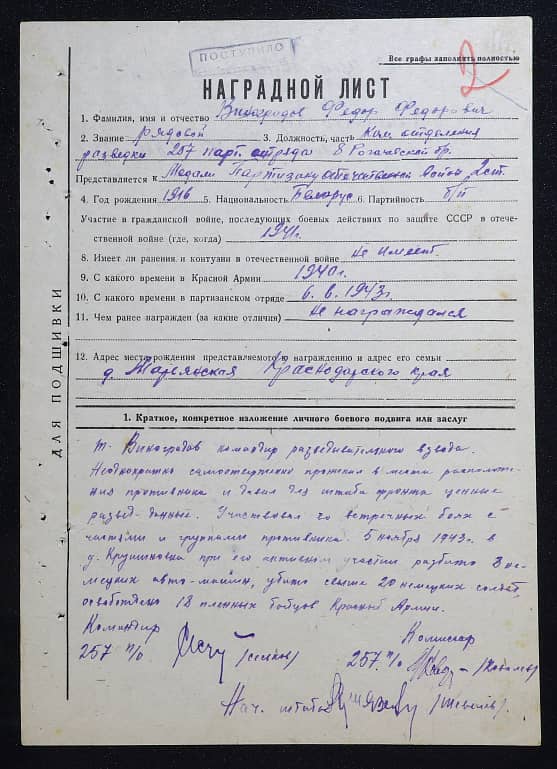 ПОСТУПИЛО
Все графы заполнять полностью
2
НАГРАДНОЙ ЛИСТ
1. Фамилия, имя и отчество Виноградов Федор Федорович
2. Звание рядовой 3. Должность, часть Ком. отделения
разведки 257 парт. отряда 8 Рогачевской бр.
Представляется к Медали Партизану Отечественной войны 2 ст.
4. Год рождения 1916 5. Национальность Белорус 6. Партийность б/п
Участие в гражданской войне, последующих боевых действиях по защите СССР в отече-
ственной войне (где, когда) 1941г.
8. Имеет ли ранения и контузии в отечественной войне Не имеет.
9. С какого времени в Красной Армии 1940г.
10. С какого времени в партизанском отряде 6. 1943г.
11. Чем ранее награжден (за какие отличия) Не награждался
12. Адрес места рождения представляемого к награждению и адрес его семьи
Краснодарского края
ДЛЯ ПОДШИВКИ
1. Краткое, конкретное изложение личного боевого подвига или заслуг
т. Виноградов командир разведывательного взвода.
Неоднократно самоотверженно проникал в места расположе-
ния противника и давал для штаба фронта ценные
развед-данные. Участвовал во встречных боях с
частями и группами противника. 5 ноября 1943г. в
д. Крушиновка при его активном участии разбито 3 не-
мецких авто-машин, убито свыше 20 немецких солдат,
освобождено 18 пленных бойцов Красной Армии.
Командир
257 п/о
Комиссар
257 п/о
Нач. штаба